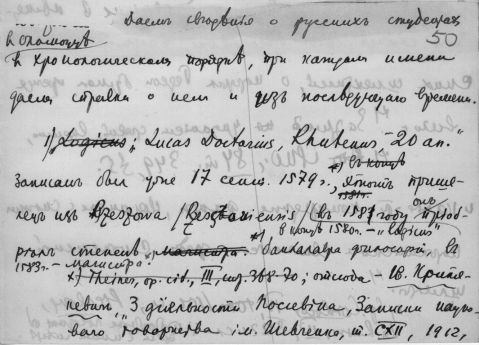 даемъ сведения о русскихъ студентах
50
в хронологическом порядке, при каждом имени
даем справки о нем и из последующаго времени.
1) Lucas Doctorius, Rhutenus, "20 an."
записан был уже 17 сент. 1579 г.,
*) в конце
Этотъ прише-
1581г.
онъ
лец из Rzeszowa / в 1581 году приоб-
*) в конце 1580г. –
релъ степень магистра бакалавра философии, в
1583г. – магистра.
*) Theiner, op. cit., III, стр. 368-70; отсюда – Ив. Крипя-
кевич "З діяльності Посевіна", Записки науко-
вого товариства ім. Шевченка, т. CXII, 1912,